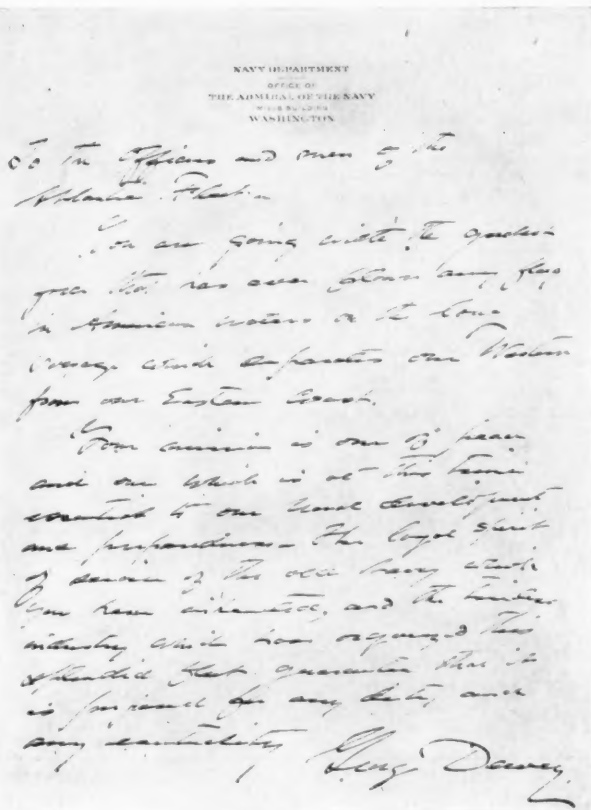 NAVY DEPARTMENT
OFFICE OF
THE ADMIRAL OF THE NAVY
MILLS BUILDING
WASHINGTON
To the Officers and men of the
Atlantic Fleet.
You are going with the greatest
force that has ever flown any flag
in American waters on the long
voyage which separates our Western
from our Eastern Coast.
Your mission is one of peace
and one which is at this time
essential to our Naval development
and preparedness. The loyal spirit
of service of the old Navy which
you have inherited, and the
industry which has organized this
splendid fleet guarantee that it
is prepared for any duty and
any eventuality
George Dewey.